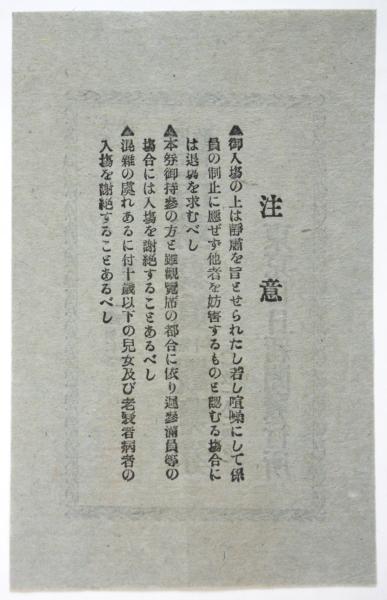 注意
▲御入場の上は靜肅を旨とせられたし若し喧噪にして係
員の制止に應ぜず他者を妨害するものと認むる場合に
は退場を求むべし
▲本券御持參の方と雖觀覽席の都合に依り遲參滿員等の
場合には入場を謝絶することあるべし
▲混雜の虞れあるに付十歳以下の兒女及び老衰者病者の
入場を謝絶することあるべし